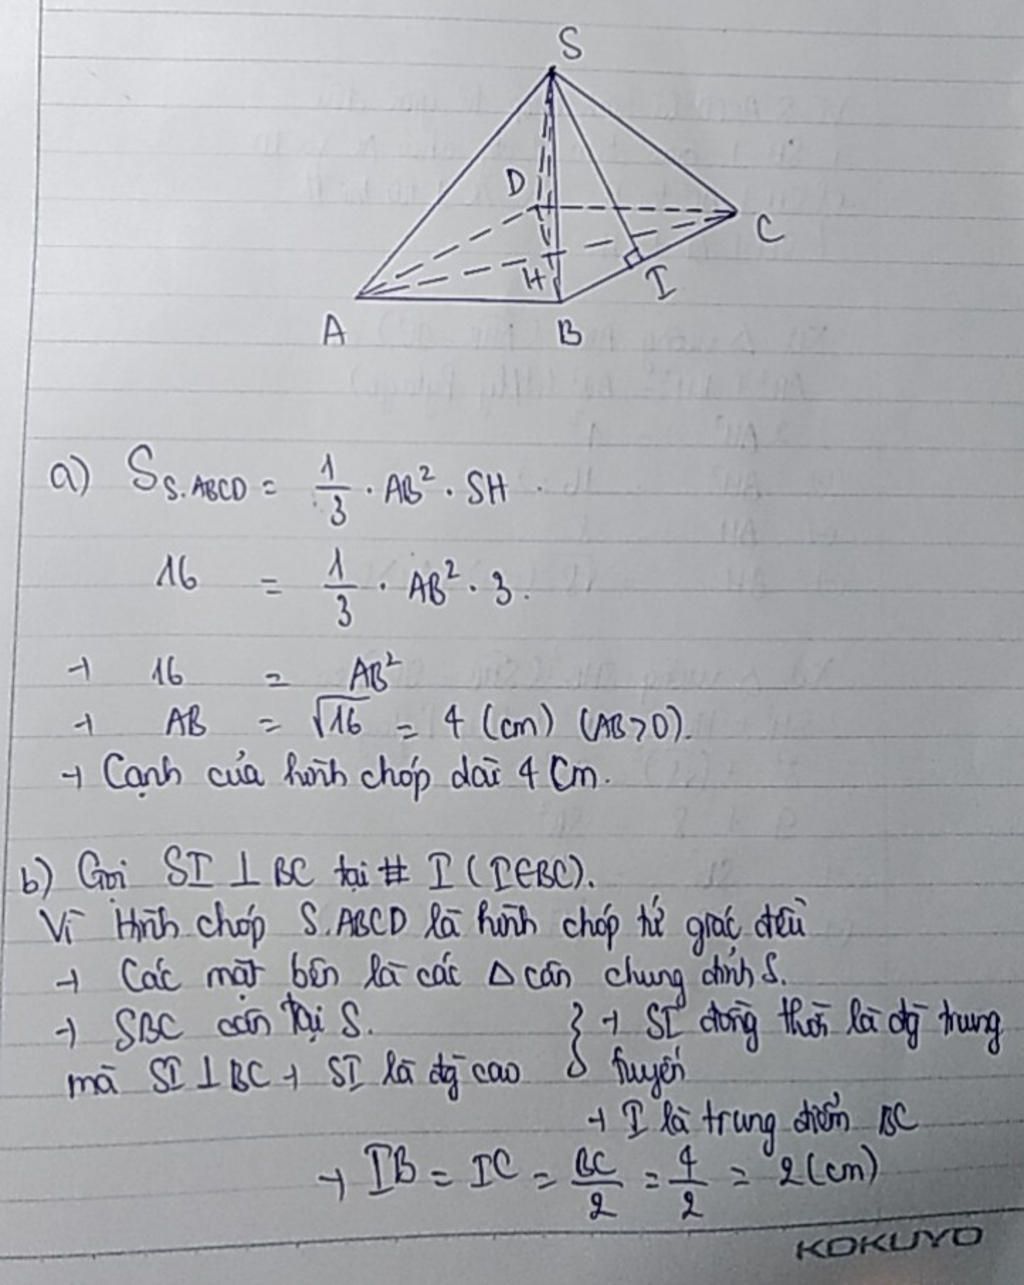 S
D
C
H
I
A
B
a) S_{S.ABCD} = \frac{1}{3} . AB² . SH
16 = \frac{1}{3} . AB² . 3.
→ 16 = AB²
→ AB = √16 = 4 (cm) (AB>0).
→ Cạnh của hình chóp dài 4 cm.
b) Gọi SI ⊥ BC tại I (I∈BC).
Vì Hình chóp S.ABCD là hình chóp tứ giác đều
→ Các mặt bên là các Δ cân chung đỉnh S.
→ SBC cân tại S. } → SI đồng thời là đg trung
mà SI ⊥ BC → SI là đg cao tuyến
→ I là trung điểm BC
→ IB = IC = \frac{BC}{2} = \frac{4}{2} = 2 (cm)
KOKUYO